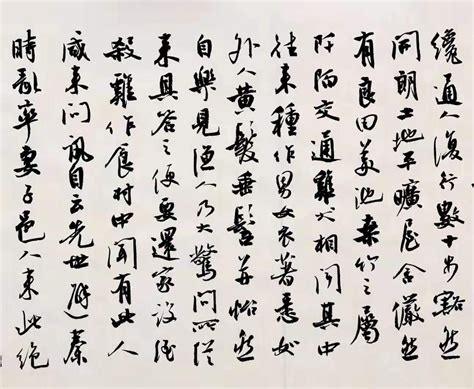 纔通人復行數十步豁然
開朗土地平曠屋舍儼然
有良田美池桑竹之屬
阡陌交通雞犬相聞其中
往來種作男女衣著悉如
外人黃髮垂髫並怡然
自樂見漁人乃大驚問所從
來具答之便要還家設酒
殺雞作食村中聞有此人
咸來問訊自云先世避秦
時亂率妻子邑人來此絕